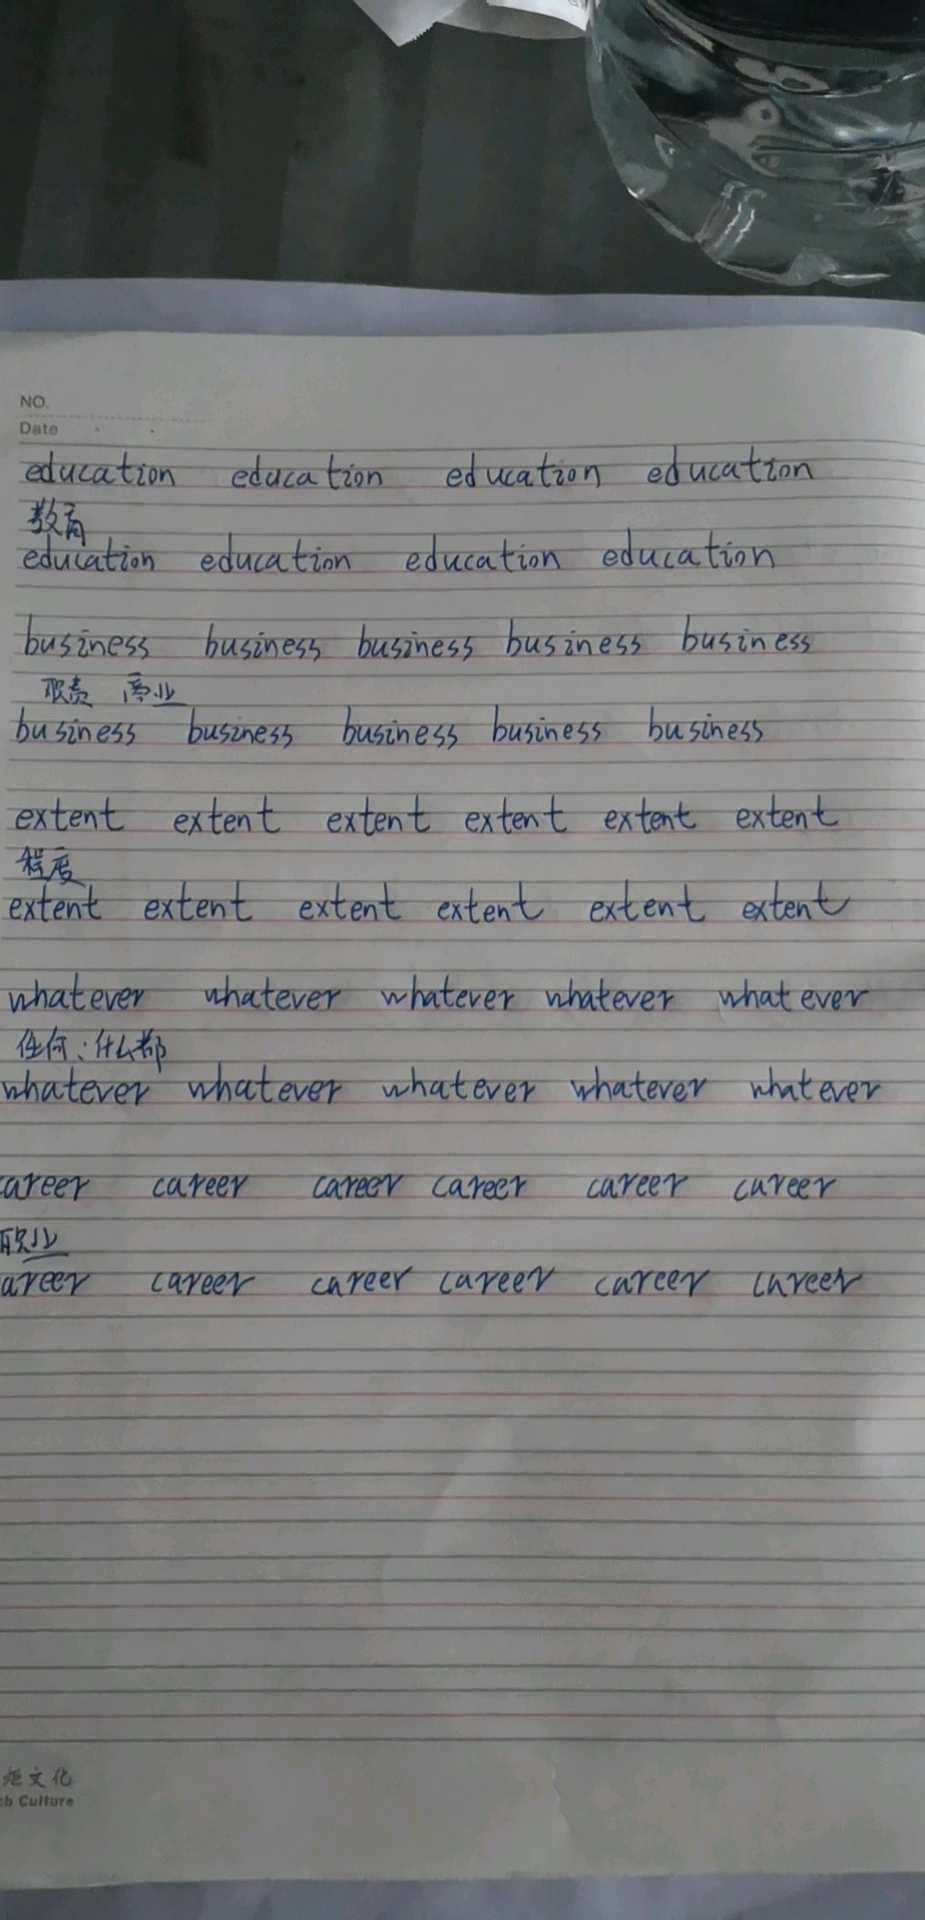 NO.
Date
education education education education
教育
education education education education
business business business business business
职责 商业
business business business business business
extent extent extent extent extent extent
程度
extent extent extent extent extent extent
whatever whatever whatever whatever whatever
任何；什么都
whatever whatever whatever whatever whatever
career career career career career career
职业
career career career career career career
炬文化
ch Culture